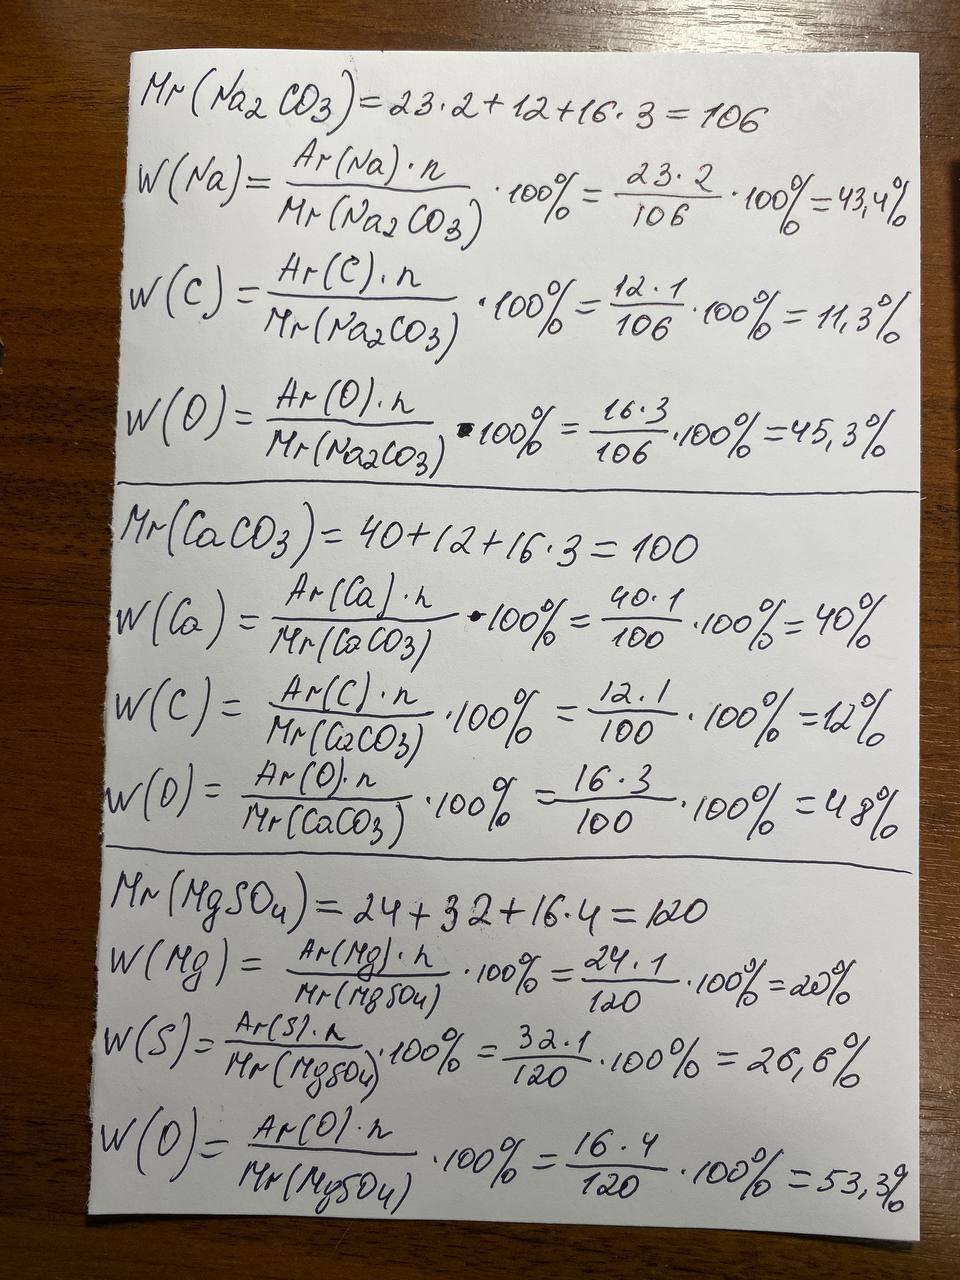 Mr(Na2CO3)=23·2+12+16·3=106
W(Na)=Ar(Na)·n/Mr(Na2CO3)·100%=23·2/106·100%=43,4%
W(C)=Ar(C)·n/Mr(Na2CO3)·100%=12·1/106·100%=11,3%
W(O)=Ar(O)·n/Mr(Na2CO3)·100%=16·3/106·100%=45,3%
Mr(CaCO3)=40+12+16·3=100
W(Ca)=Ar(Ca)·n/Mr(CaCO3)·100%=40·1/100·100%=40%
W(C)=Ar(C)·n/Mr(CaCO3)·100%=12·1/100·100%=12%
W(O)=Ar(O)·n/Mr(CaCO3)·100%=16·3/100·100%=48%
Mr(MgSO4)=24+32+16·4=120
W(Mg)=Ar(Mg)·n/Mr(MgSO4)·100%=24·1/120·100%=20%
W(S)=Ar(S)·n/Mr(MgSO4)·100%=32·1/120·100%=26,6%
W(O)=Ar(O)·n/Mr(MgSO4)·100%=16·4/120·100%=53,3%